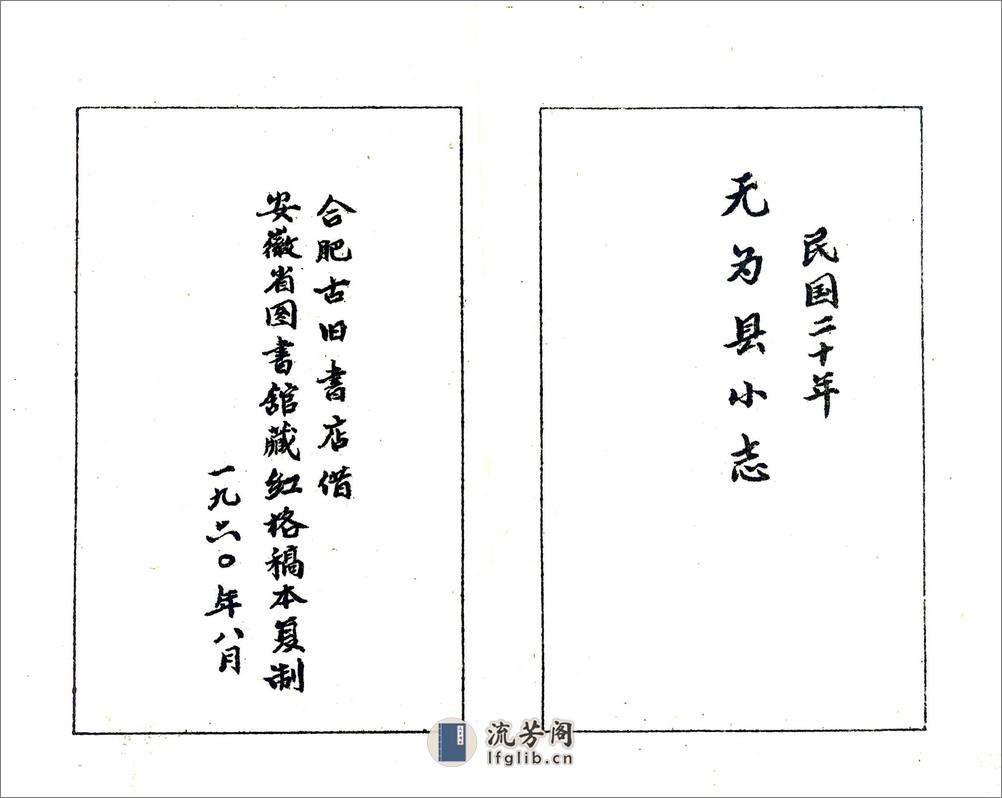 民国二十年
无为县小志
合肥古旧书店借
安徽省图书舘藏红格稿本复制
一九六〇年八月
流芳阁
lfglib.cn